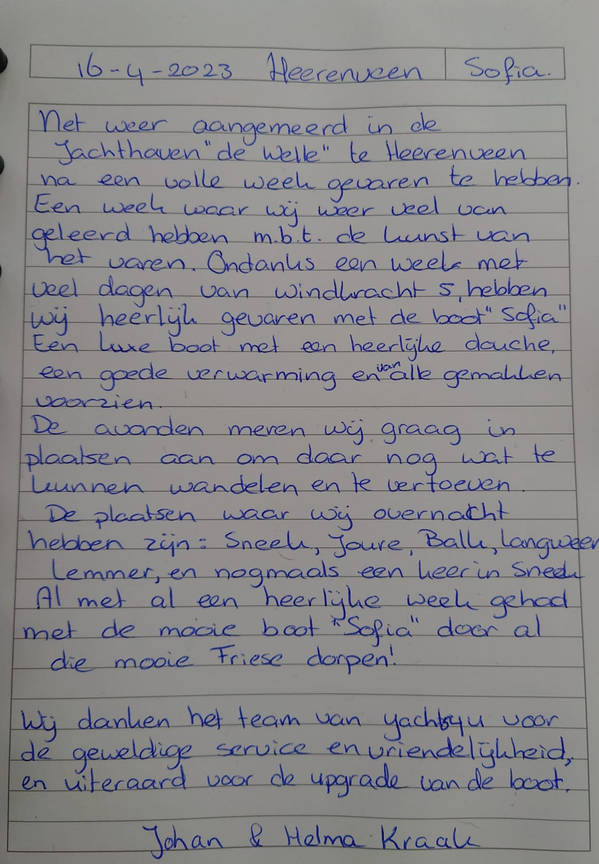 16-4-2023 Heerenveen Sofia.
Net weer aangemeerd in de
Jachthaven "de Welle" te Heerenveen
na een volle week gevaren te hebben.
Een week waar wij weer veel van
geleerd hebben m.b.t. de kunst van
het varen. Ondanks een week met
veel dagen van windkracht 5, hebben
wij heerlijk gevaren met de boot "Sofia"
Een luxe boot met een heerlijke douche,
een goede verwarming en van alle gemakken
voorzien.
De avonden meren wij graag in
plaatsen aan om daar nog wat te
kunnen wandelen en te vertoeven.
De plaatsen waar wij overnacht
hebben zijn: Sneek, Joure, Balk, Langweer
Lemmer, en nogmaals een keer in Sneek
Al met al een heerlijke week gehad
met de mooie boot "Sofia" door al
die mooie Friese dorpen!
Wij danken het team van yachts4u voor
de geweldige service en vriendelijkheid,
en uiteraard voor de upgrade van de boot.
Johan & Helma Kraak